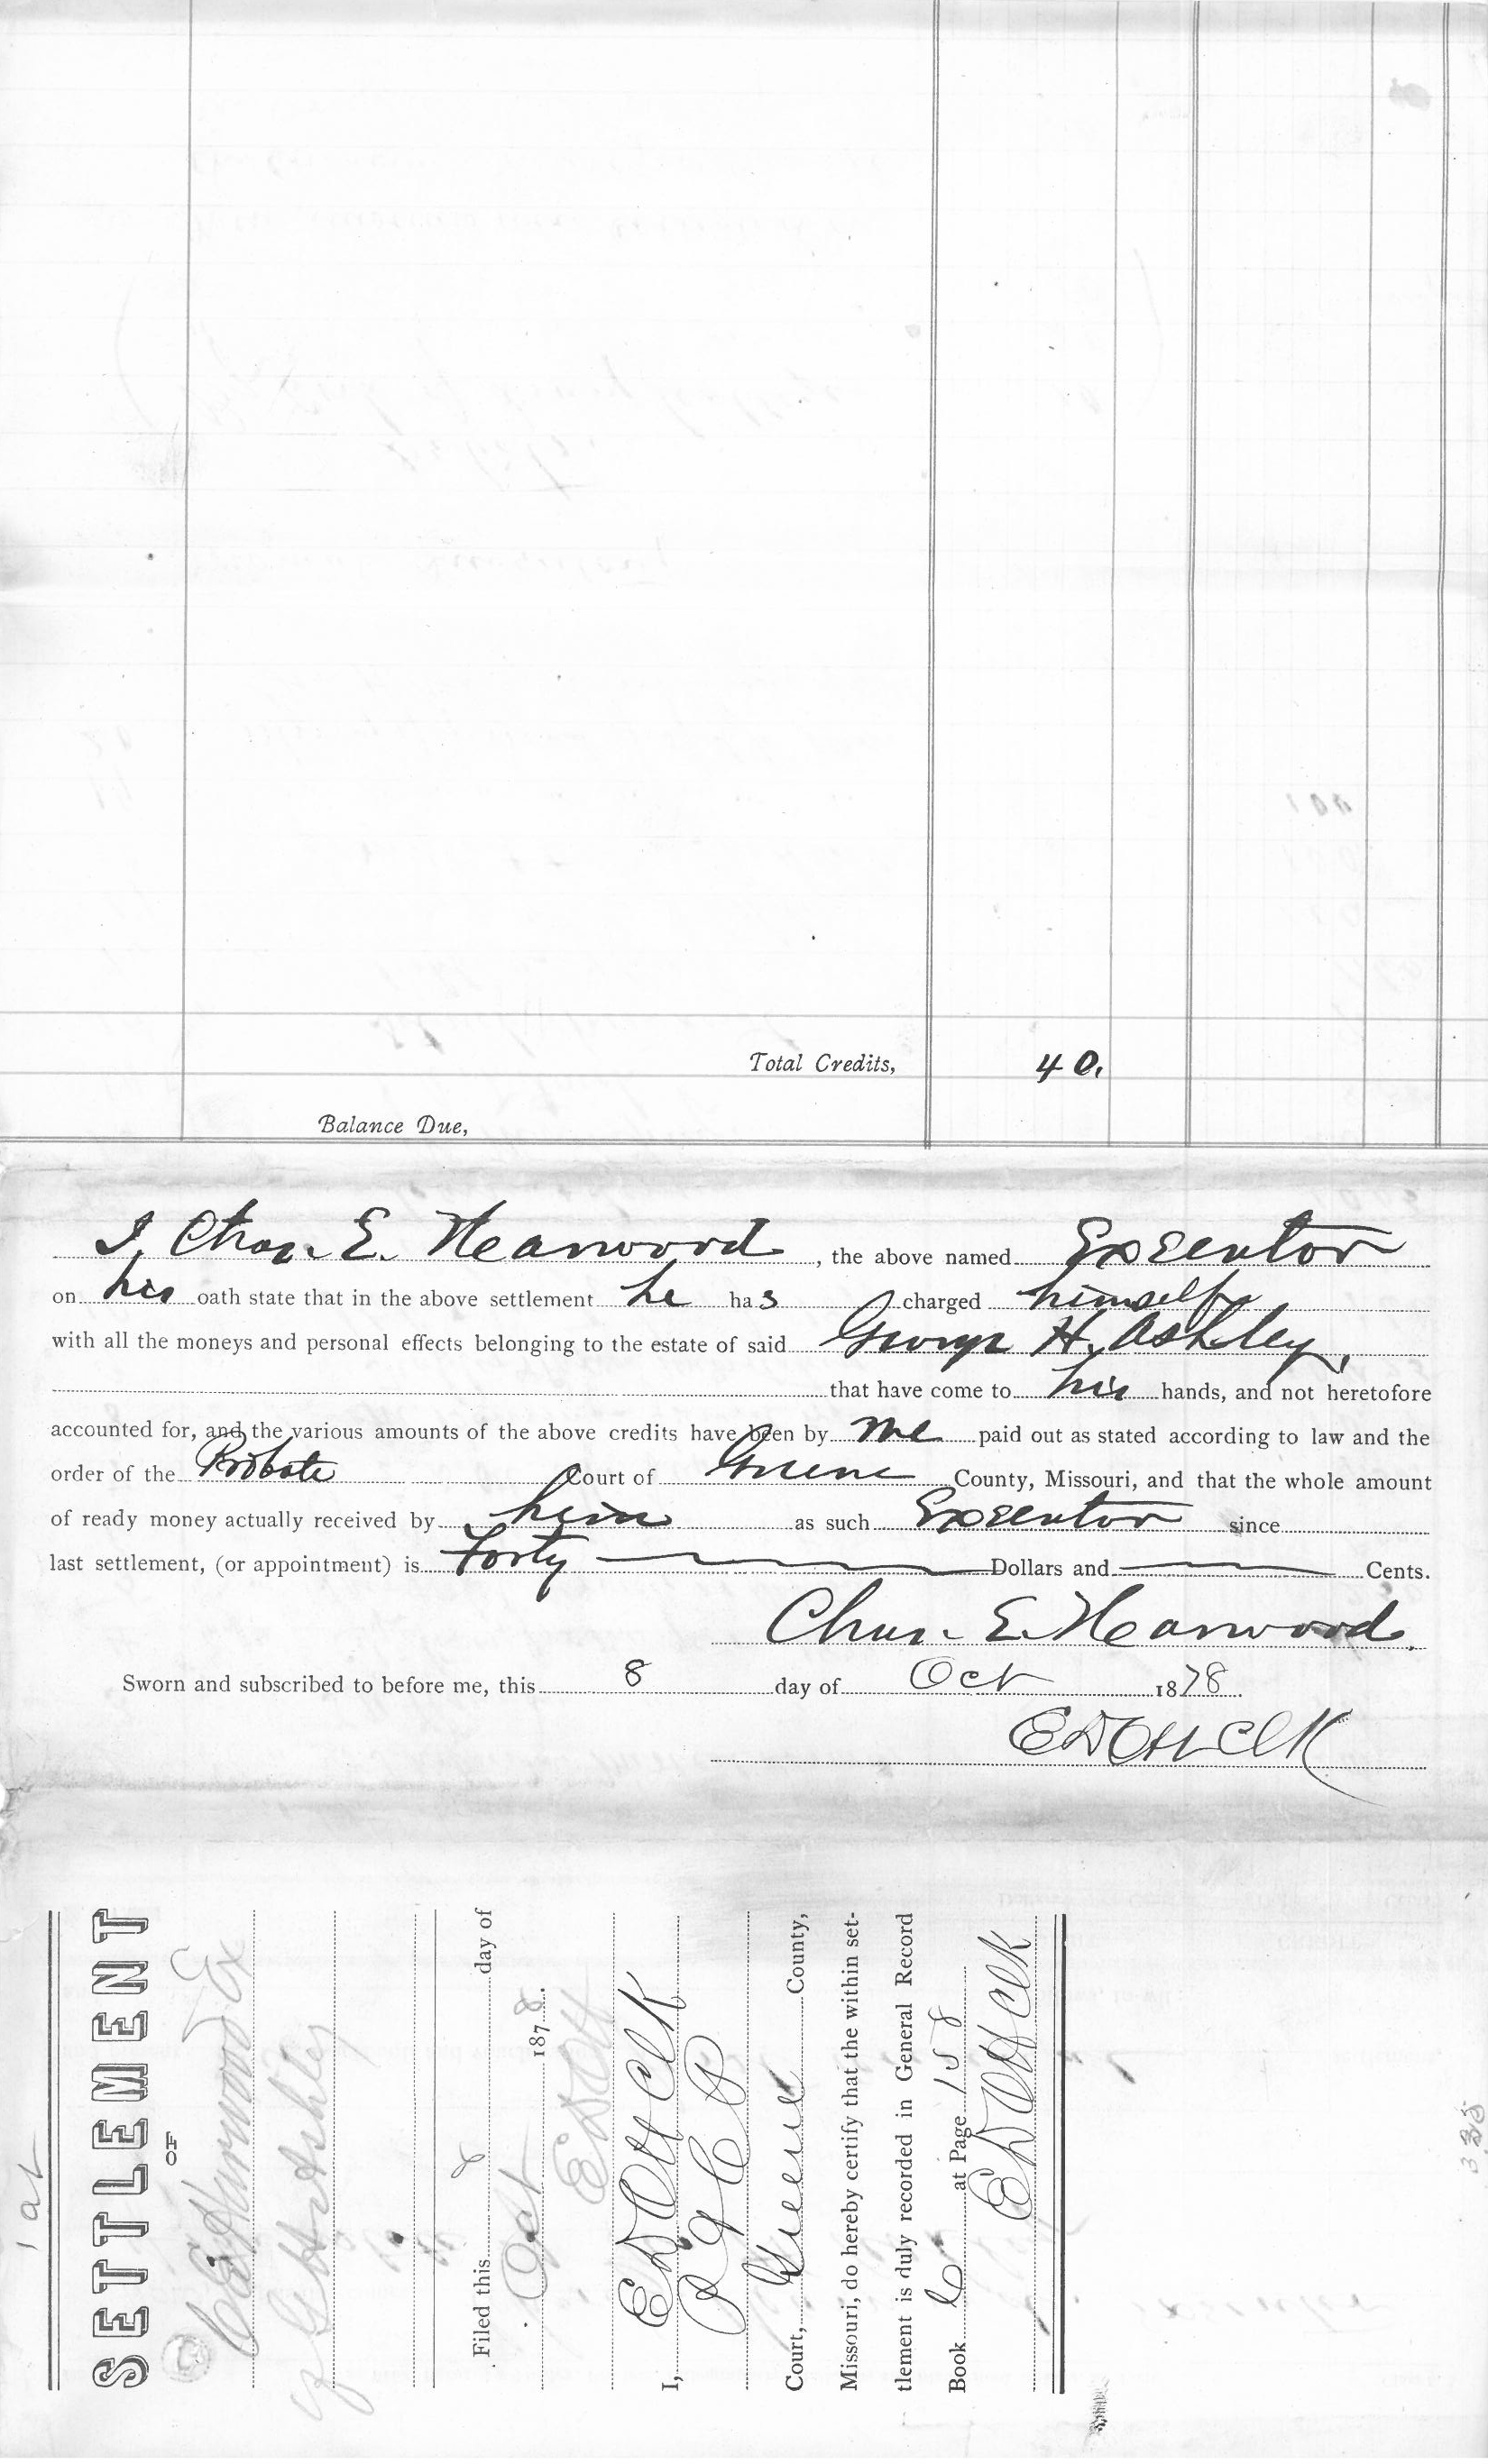 Total Credits, 40.
Balance Due,
I, Chas. E. Harwood, the above named Executor
on his oath state that in the above settlement he has charged himself
with all the moneys and personal effects belonging to the estate of said George H. Ashley,
that have come to his hands, and not heretofore
accounted for, and the various amounts of the above credits have been by me paid out as stated according to law and the
order of the Probate Court of Greene County, Missouri, and that the whole amount
of ready money actually received by him as such Executor since
last settlement, (or appointment) is Forty Dollars and Cents.
Chas. E. Harwood.
Sworn and subscribed to before me, this 8 day of Oct 1878.
E D Ott Clk
1st
SETTLEMENT
OF
C E Harwood Ex
of G H Ashley
Filed this 8 day of
Oct 1878.
E D Ott
E D Ott Clk
I,
Court, Greene County,
Missouri, do hereby certify that the within set-
tlement is duly recorded in General Record
Book C at Page 158
E D Ott Clk